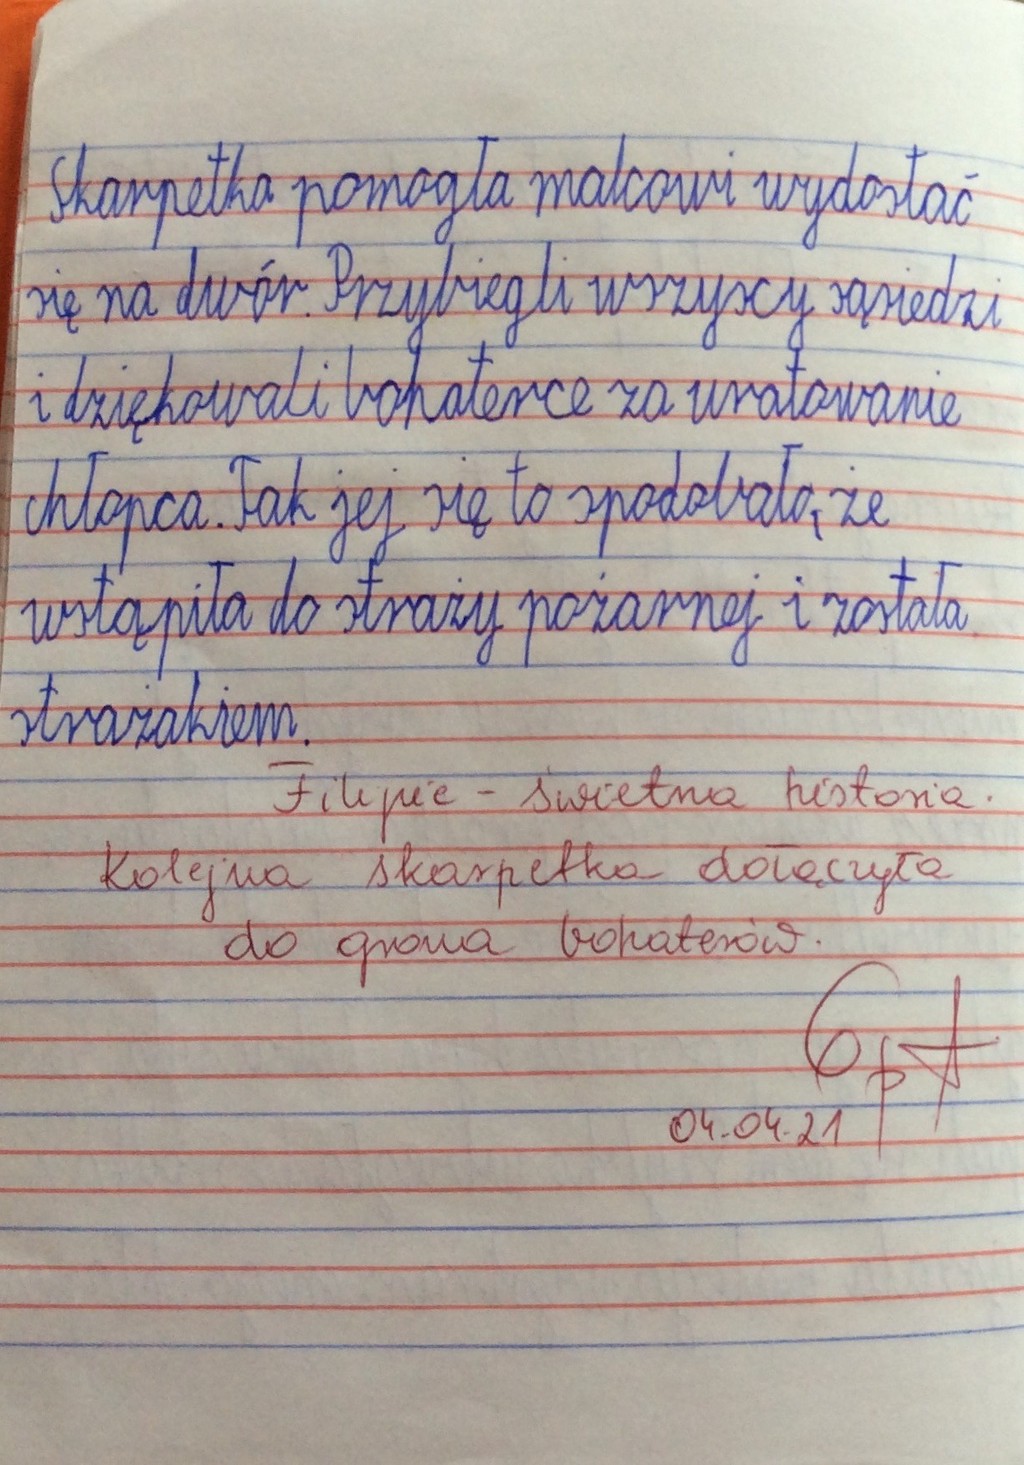 Skarpetka pomogła malcowi wydostać
się na dwór. Przybiegli wszyscy sąsiedzi
i dziękowali bohaterce za uratowanie
chłopca. Tak jej się to spodobało, że
wstąpiła do straży pożarnej i została
strażakiem.
Filipie - świetna historia.
Kolejna skarpetka dołączyła
do grona bohaterów.
04.04.21